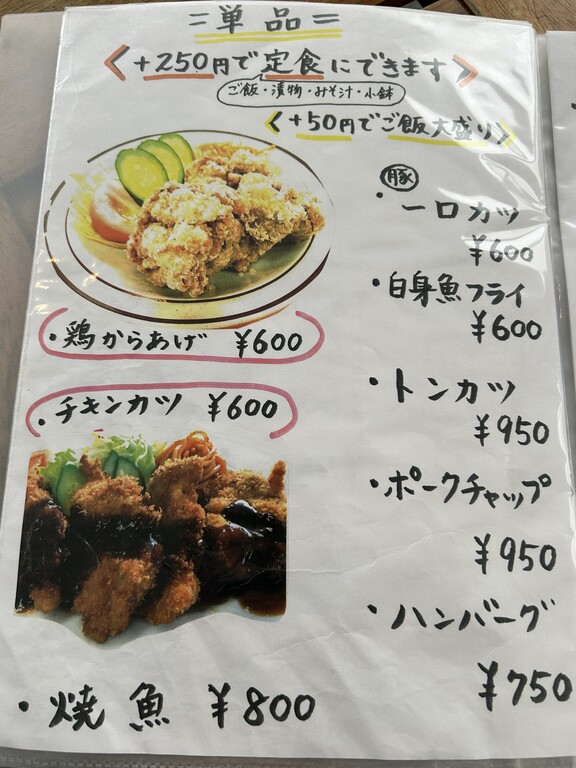 =単品=
<+250円で定食にできます>
ご飯・漬物・みそ汁・小鉢
<+50円でご飯大盛り>
・鶏からあげ ¥600
・チキンカツ ¥600
・焼魚 ¥800
豚
・一口カツ
¥600
・白身魚フライ
¥600
・トンカツ
¥950
・ポークチャップ
¥950
・ハンバーグ
¥750